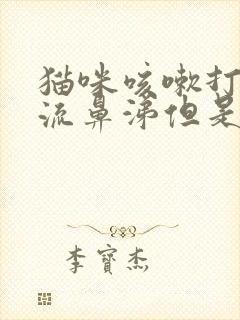 猫咪咳嗽打
流鼻涕但是
李寶杰